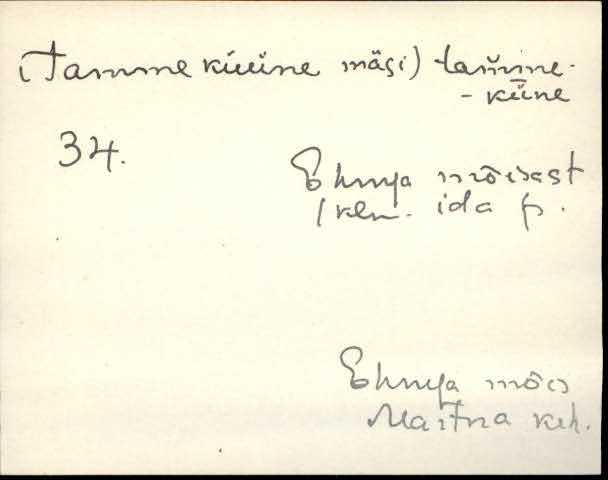 (Tammeküüne mägi) tam̆me-
- kü̱ne
34.
Ehmja mõisast
1 klm. ida p.
Ehmja mõis
Martna keh.